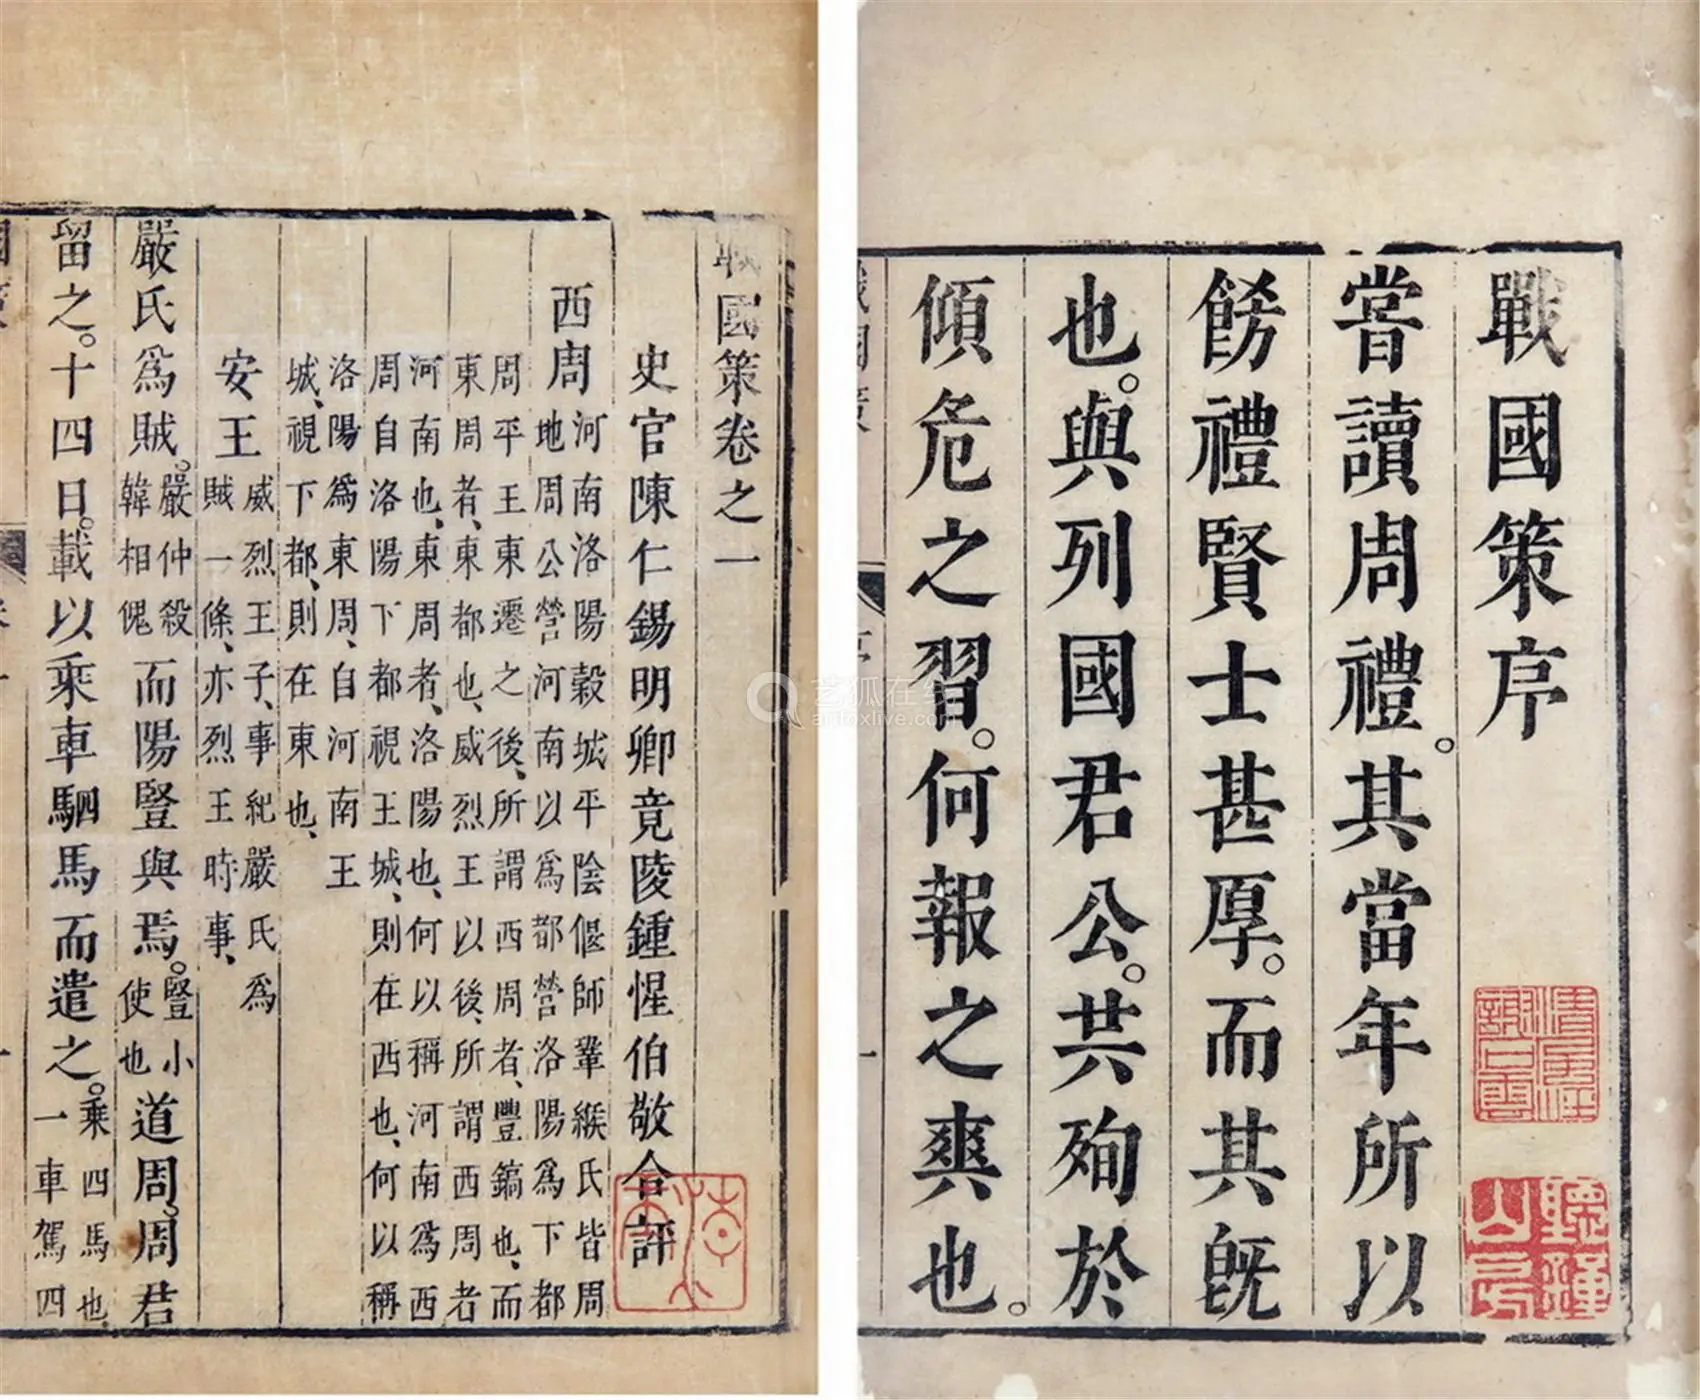 戰國策序
嘗讀周禮。其當年所以
餝禮賢士甚厚。而其旣
也。與列國君公。共殉於
傾危之習。何報之爽也。
戰國策卷之一
史官陳仁錫明卿竟陵鍾惺伯敬合評
西周河南洛陽穀城平陰偃師鞏緱氏皆周
地周公營河南以爲都營洛陽爲下都
周平王東遷之後、所謂西周者、豐鎬也、而
東周者、東都也、威烈王以後、所謂西周者
河南也、東周者、洛陽也、何以稱河南爲西
周自洛陽下都視王城、則在西也、何以稱
洛陽爲東周、自河南王
城、視下都、則在東也、
安王威烈王子、事紀嚴氏爲
賊一條、亦烈王時事、
嚴氏爲賊。嚴仲殺韓相傀而陽豎與焉。豎小使也道周、周君
留之。十四日。載以乘車駟馬而遣之。乘四馬也、一車駕四
艺狐在线
artfoxlive.com